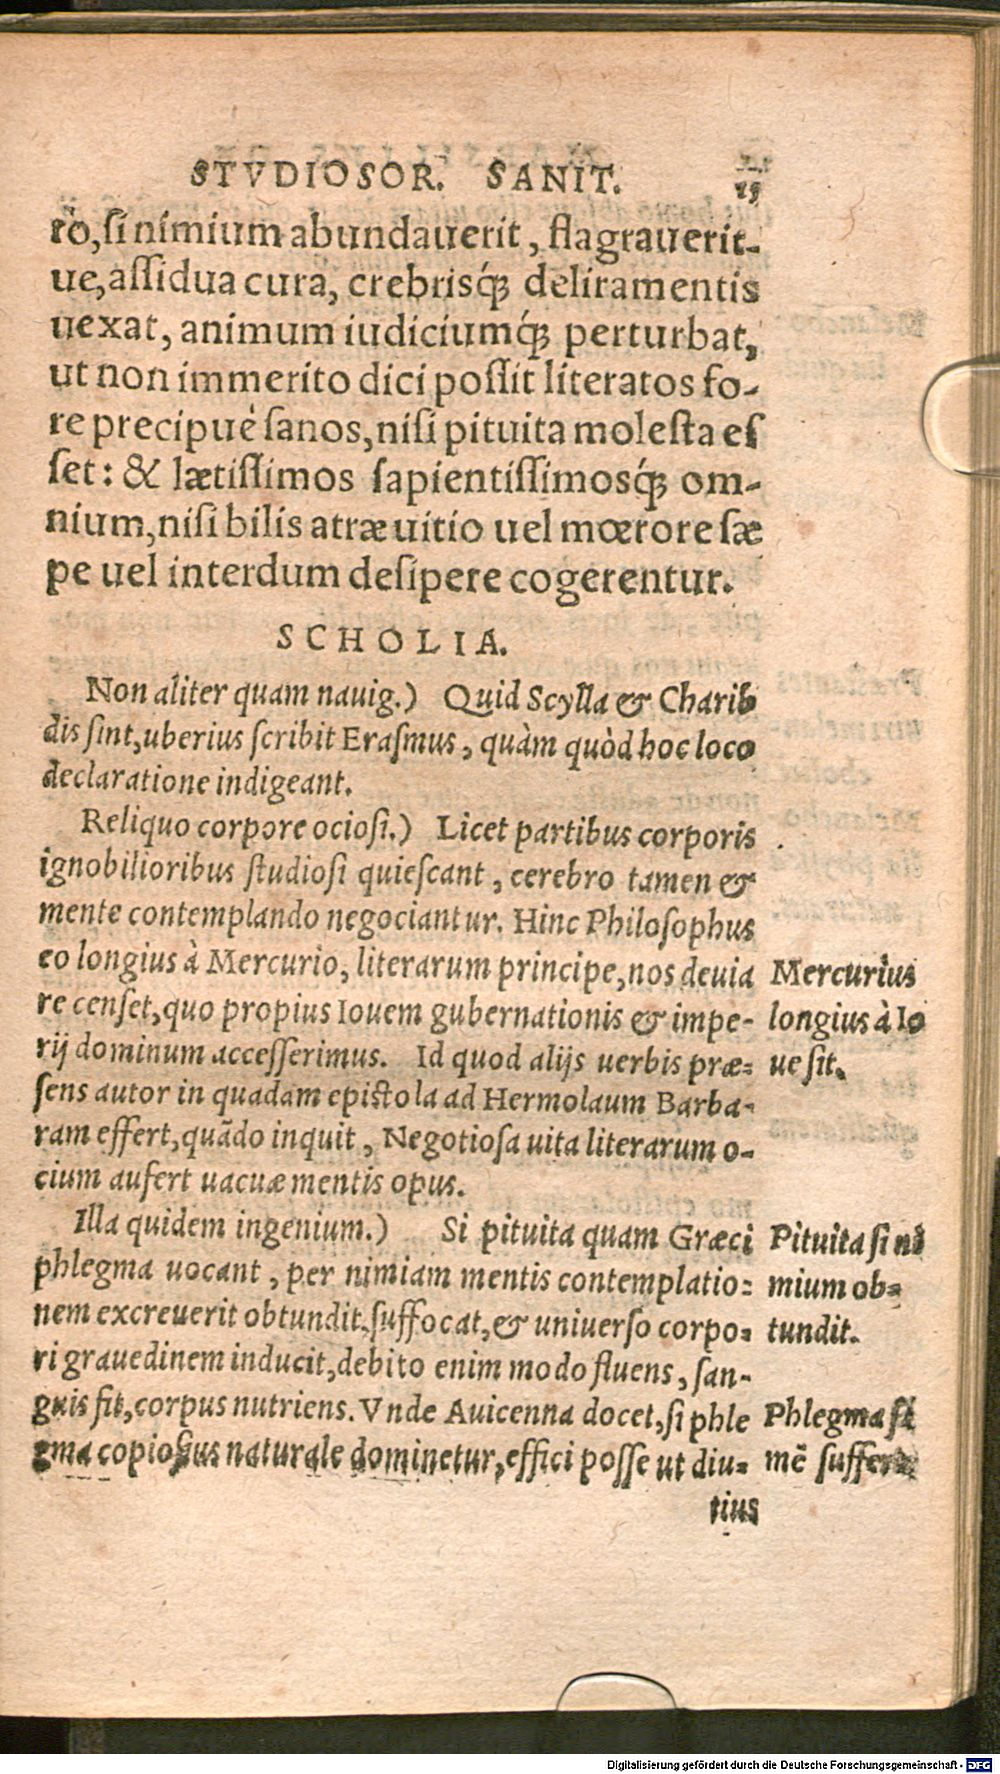 STVDIOSOR. SANIT.
rò, si nimium abundauerit, flagrauerit-
ue, assidua cura, crebrisq́; deliramentis
uexat, animum iudiciumq́; perturbat,
ut non immerito dici possit literatos fo-
re precipuè sanos, nisi pituita molesta es
set: & lætissimos sapientissimosq́; om-
nium, nisi bilis atræ uitio uel mœrore sæ
pe uel interdum desipere cogerentur.
SCHOLIA.
Non aliter quam nauig.) Quid Scylla & Charib
dis sint, uberius scribit Erasmus, quàm quòd hoc loco
declaratione indigeant.
Reliquo corpore ociosi.) Licet partibus corporis
ignobilioribus studiosi quiescant, cerebro tamen &
mente contemplando negociantur. Hinc Philosophus
eo longius à Mercurio, literarum principe, nos deuia
re censet, quo propius Iouem gubernationis & impe-
rij dominum accesserimus. Id quod alijs uerbis præ-
sens autor in quadam epistola ad Hermolaum Barba-
ram effert, quãdo inquit, Negotiosa uita literarum o-
cium aufert uacuæ mentis opus.
Illa quidem ingenium.) Si pituita quam Græci
phlegma uocant, per nimiam mentis contemplatio-
nem excreuerit obtundit, suffocat, & uniuerso corpo-
ri grauedinem inducit, debito enim modo fluens, san-
guis fit, corpus nutriens. Vnde Auicenna docet, si phle
gma copiosius naturale dominetur, effici posse ut diu-
tius
Mercurius
longius à Io
ue sit.
Pituita si ni
mium ob-
tundit.
Phlegma si
mē
Digitalisierung gefördert durch die Deutsche Forschungsgemeinschaft - DFG